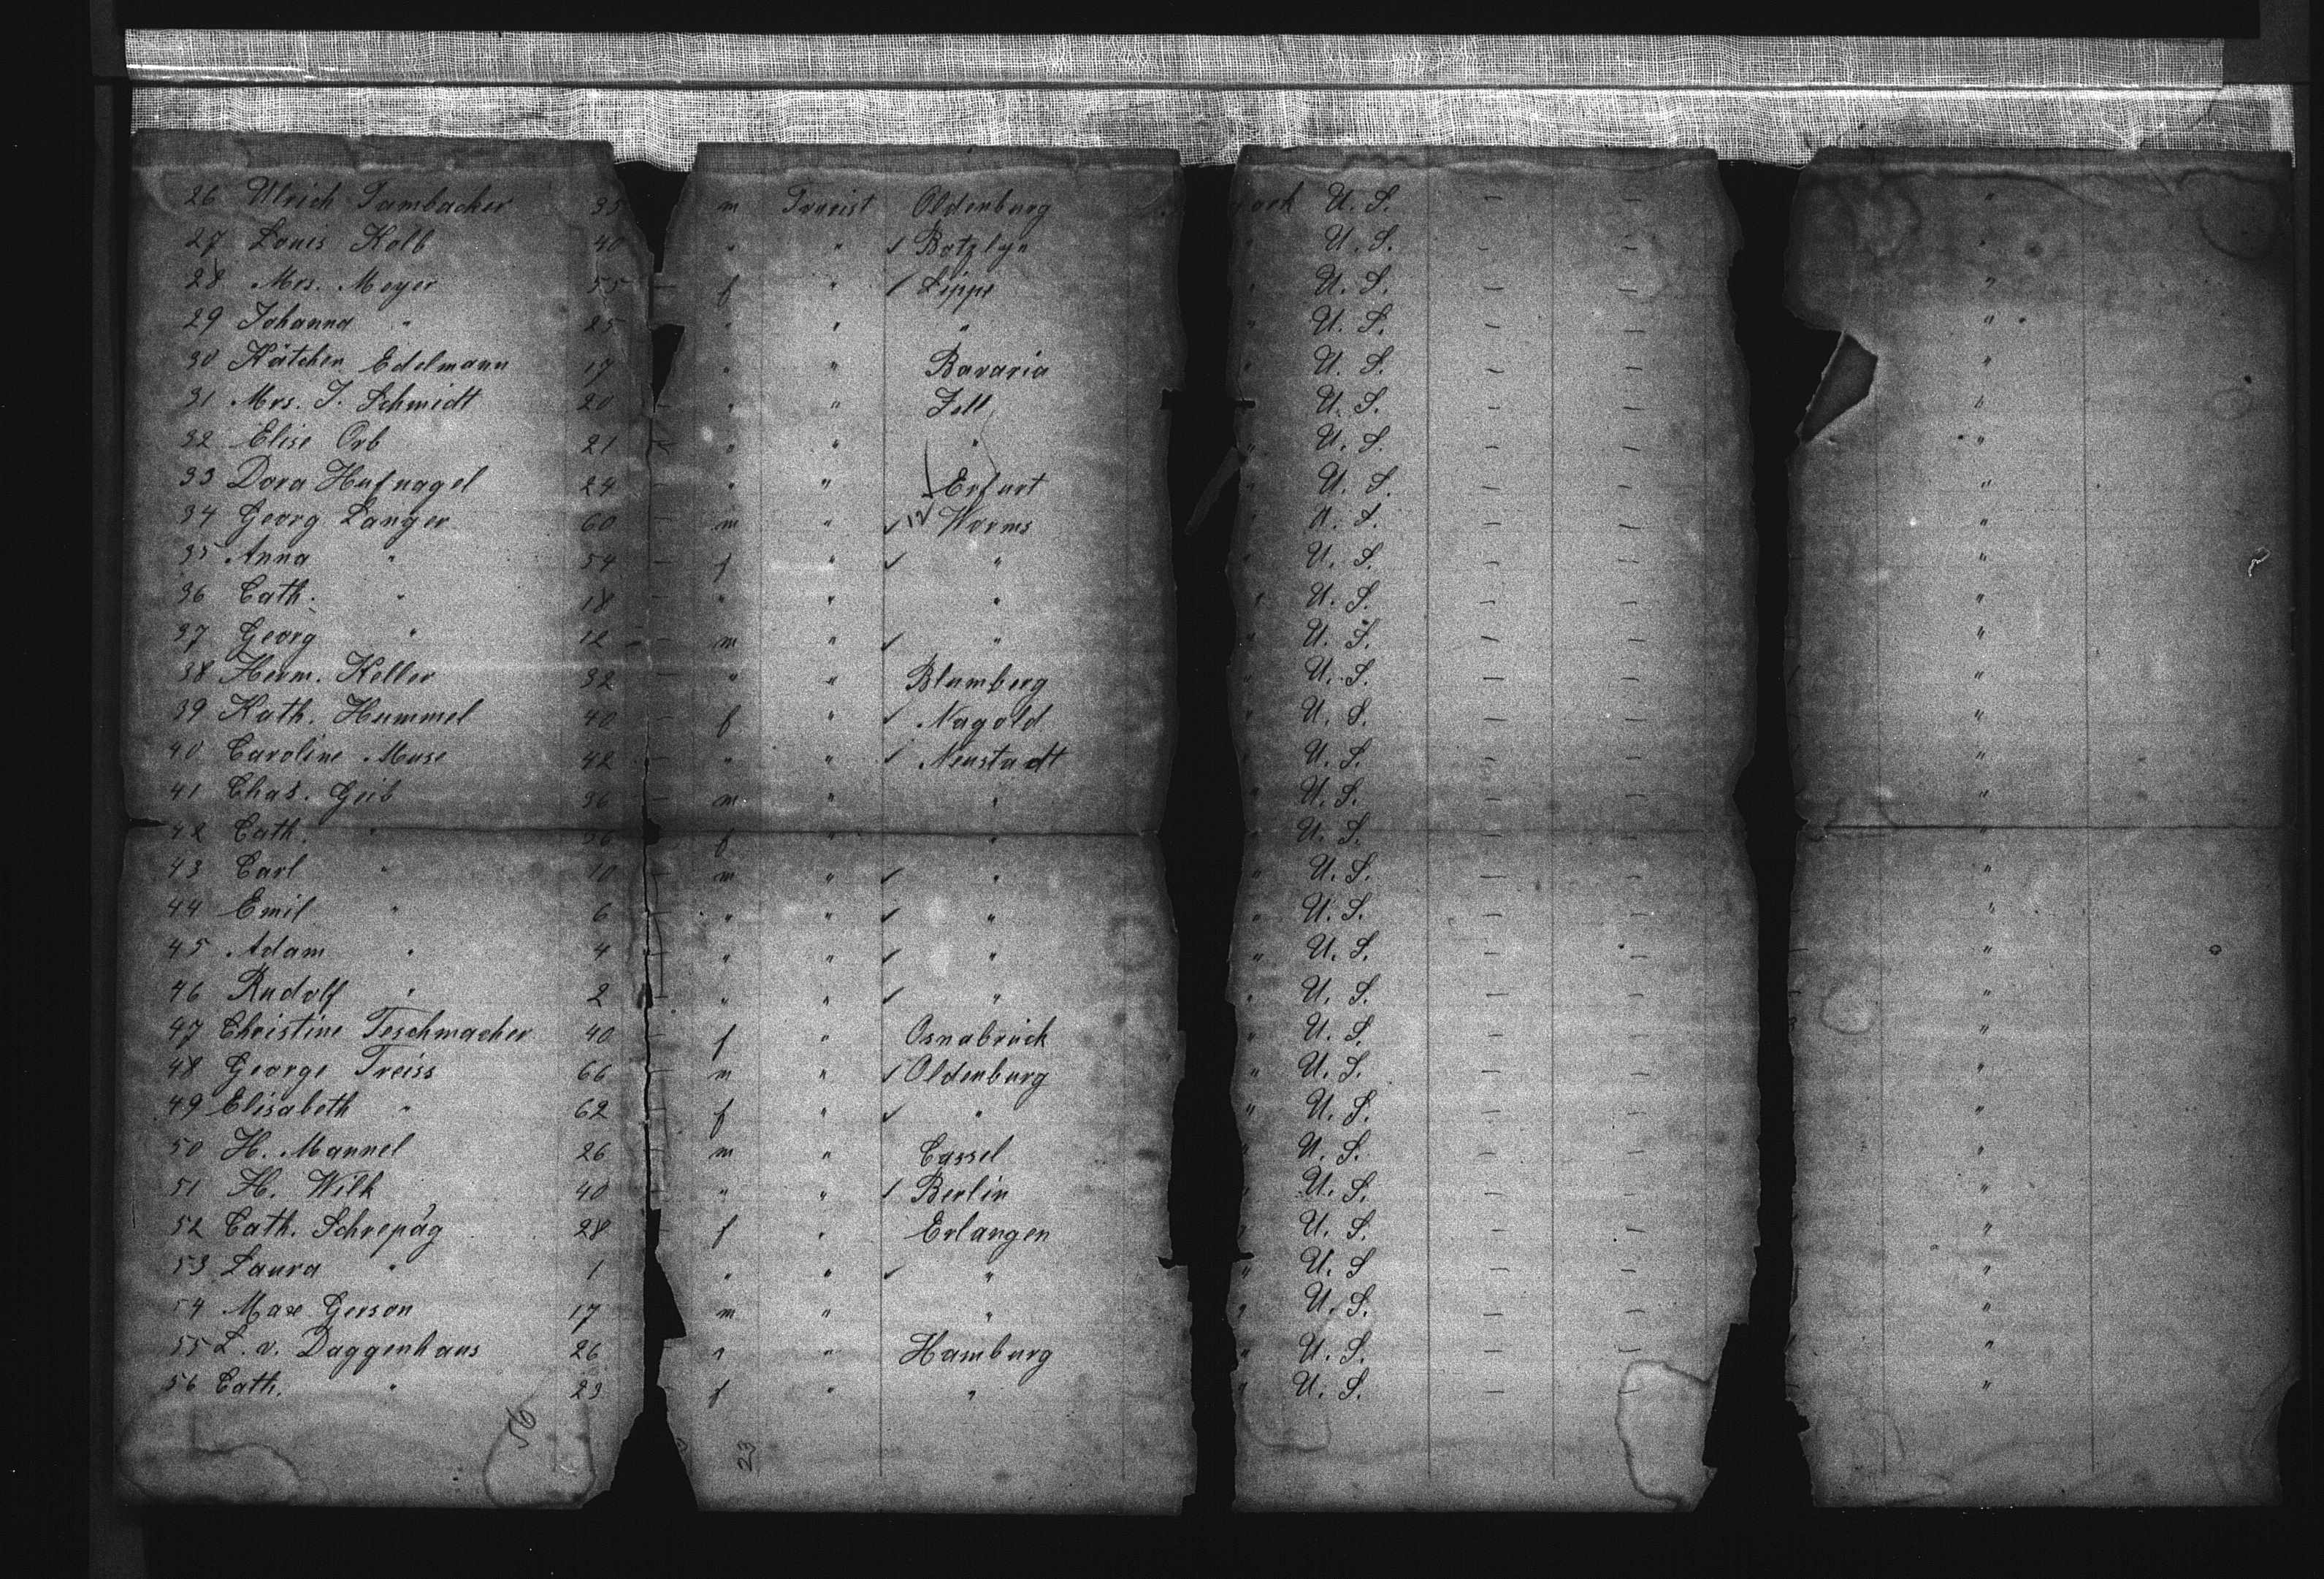 26 Ulrich Tambacher 33 m Tourist Oldenburg U. S. — — "
27 Louis Kolb 40 " " ✓ " U. S. — — "
28 Mrs. Meyer 55 — f " ✓ Lippe " U. S. — — "
29 Johanna " 25 " " " " U. S. — — "
30 Kätchen Edelmann 17 " " Bavaria " U. S. — — "
31 Mrs. J. Schmidt 20 — " " Zell U. S. — — "
32 Elise Orb 21 — " " " " U. S. — — "
33 Dora Hufnagel 24 — " " Erfurt " U. S. — — "
34 Georg Langer 60 — m " ✓ 12 Worms " U. S. — — "
35 Anna " 54 — f " ✓ " " U. S. — — "
36 Cath. " 18 — " " " " U. S. — — "
37 Georg " 12 — m " ✓ " " U. S. — — "
38 Herm. Keller 32 — " " Blumberg " U. S. — — "
39 Kath. Hummel 40 — f " ✓ Nagold " U. S. — — "
40 Caroline Muse 42 — " " ✓ Neustadt " U. S. — — "
41 Chas. Geib 36 — m " " " U. S. — — "
42 Cath. " 36 f " " " U. S. — — "
43 Carl " 10 — m " ✓ " " U. S. — — "
44 Emil " 6 — " " ✓ " " U. S. — — "
45 Adam " 4 " " ✓ " " U. S. — — "
46 Rudolf " 2 — " " ✓ " " U. S. — — "
47 Christine Teschmacher 40 — f " Osnabrück " U. S. — — "
48 George Treiss 66 — m " ✓ Oldenburg " U. S. — — "
49 Elisabeth " 62 — f " ✓ " " U. S. — — "
50 H. Mannel 26 — m " Cassel " U. S. — — "
51 H. Wilk 40 — " " ✓ Berlin " U. S. — — "
52 Cath. Schrepäg 28 f " Erlangen " U. S. — — "
53 Laura " 1 " " ✓ " " U. S — — "
54 Max Gerson 17 m " " " U. S. — — "
55 L. v. Daggenhaus 26 " " Hamburg " U. S. — — "
56 Cath. " 23 f " " " U. S. — — "
56 23